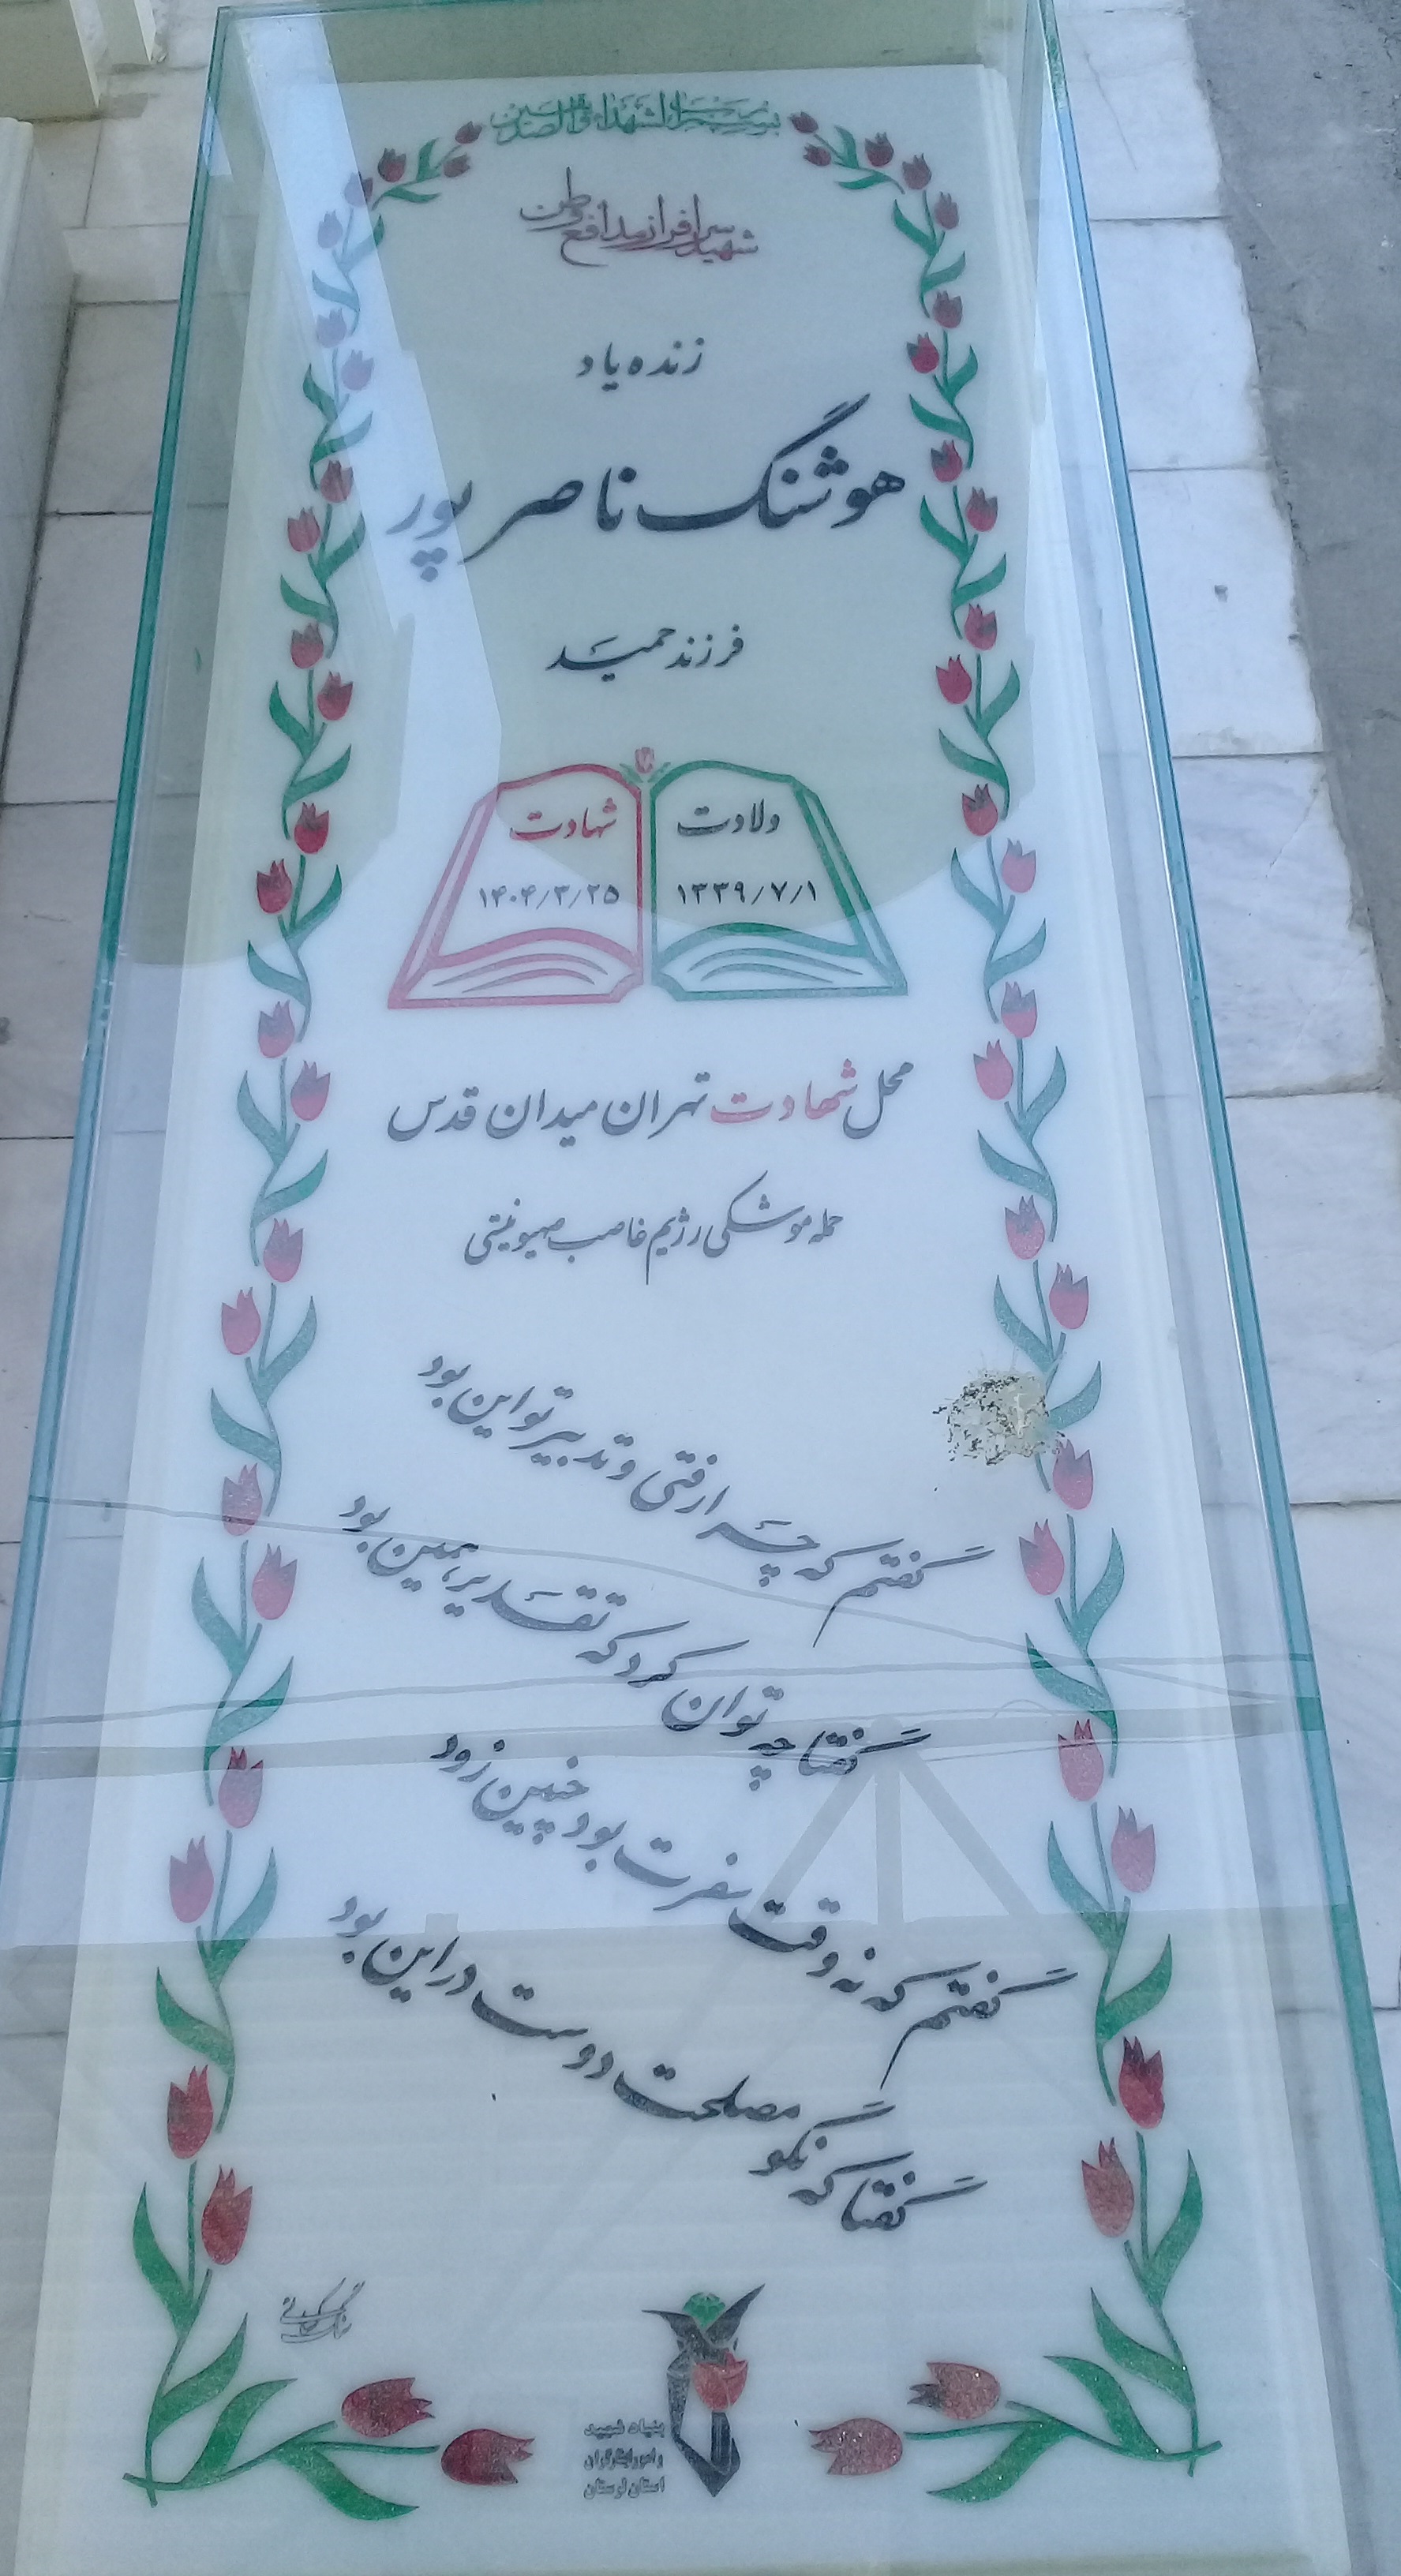 بسم رب الشهداء و الصدیقین
شهید سرافراز مدافع وطن
زنده یاد
هوشنگ ناصر پور
فرزند حمید
ولادت
۱۳۳۹/۷/۱
شهادت
۱۴۰۴/۳/۲۵
محل شهادت تهران میدان قدس
حمله موشکی رژیم غاصب صهیونیستی
گفتم که چرا رفتی و تدبیر تو این بود
گفتا چه توان کرد که تقدیر همین بود
گفتم که نه وقت سفرت بود چنین زود
گفتا که نگو مصلحت دوست در این بود
بنیاد شهید
و امور ایثارگران
استان لرستان